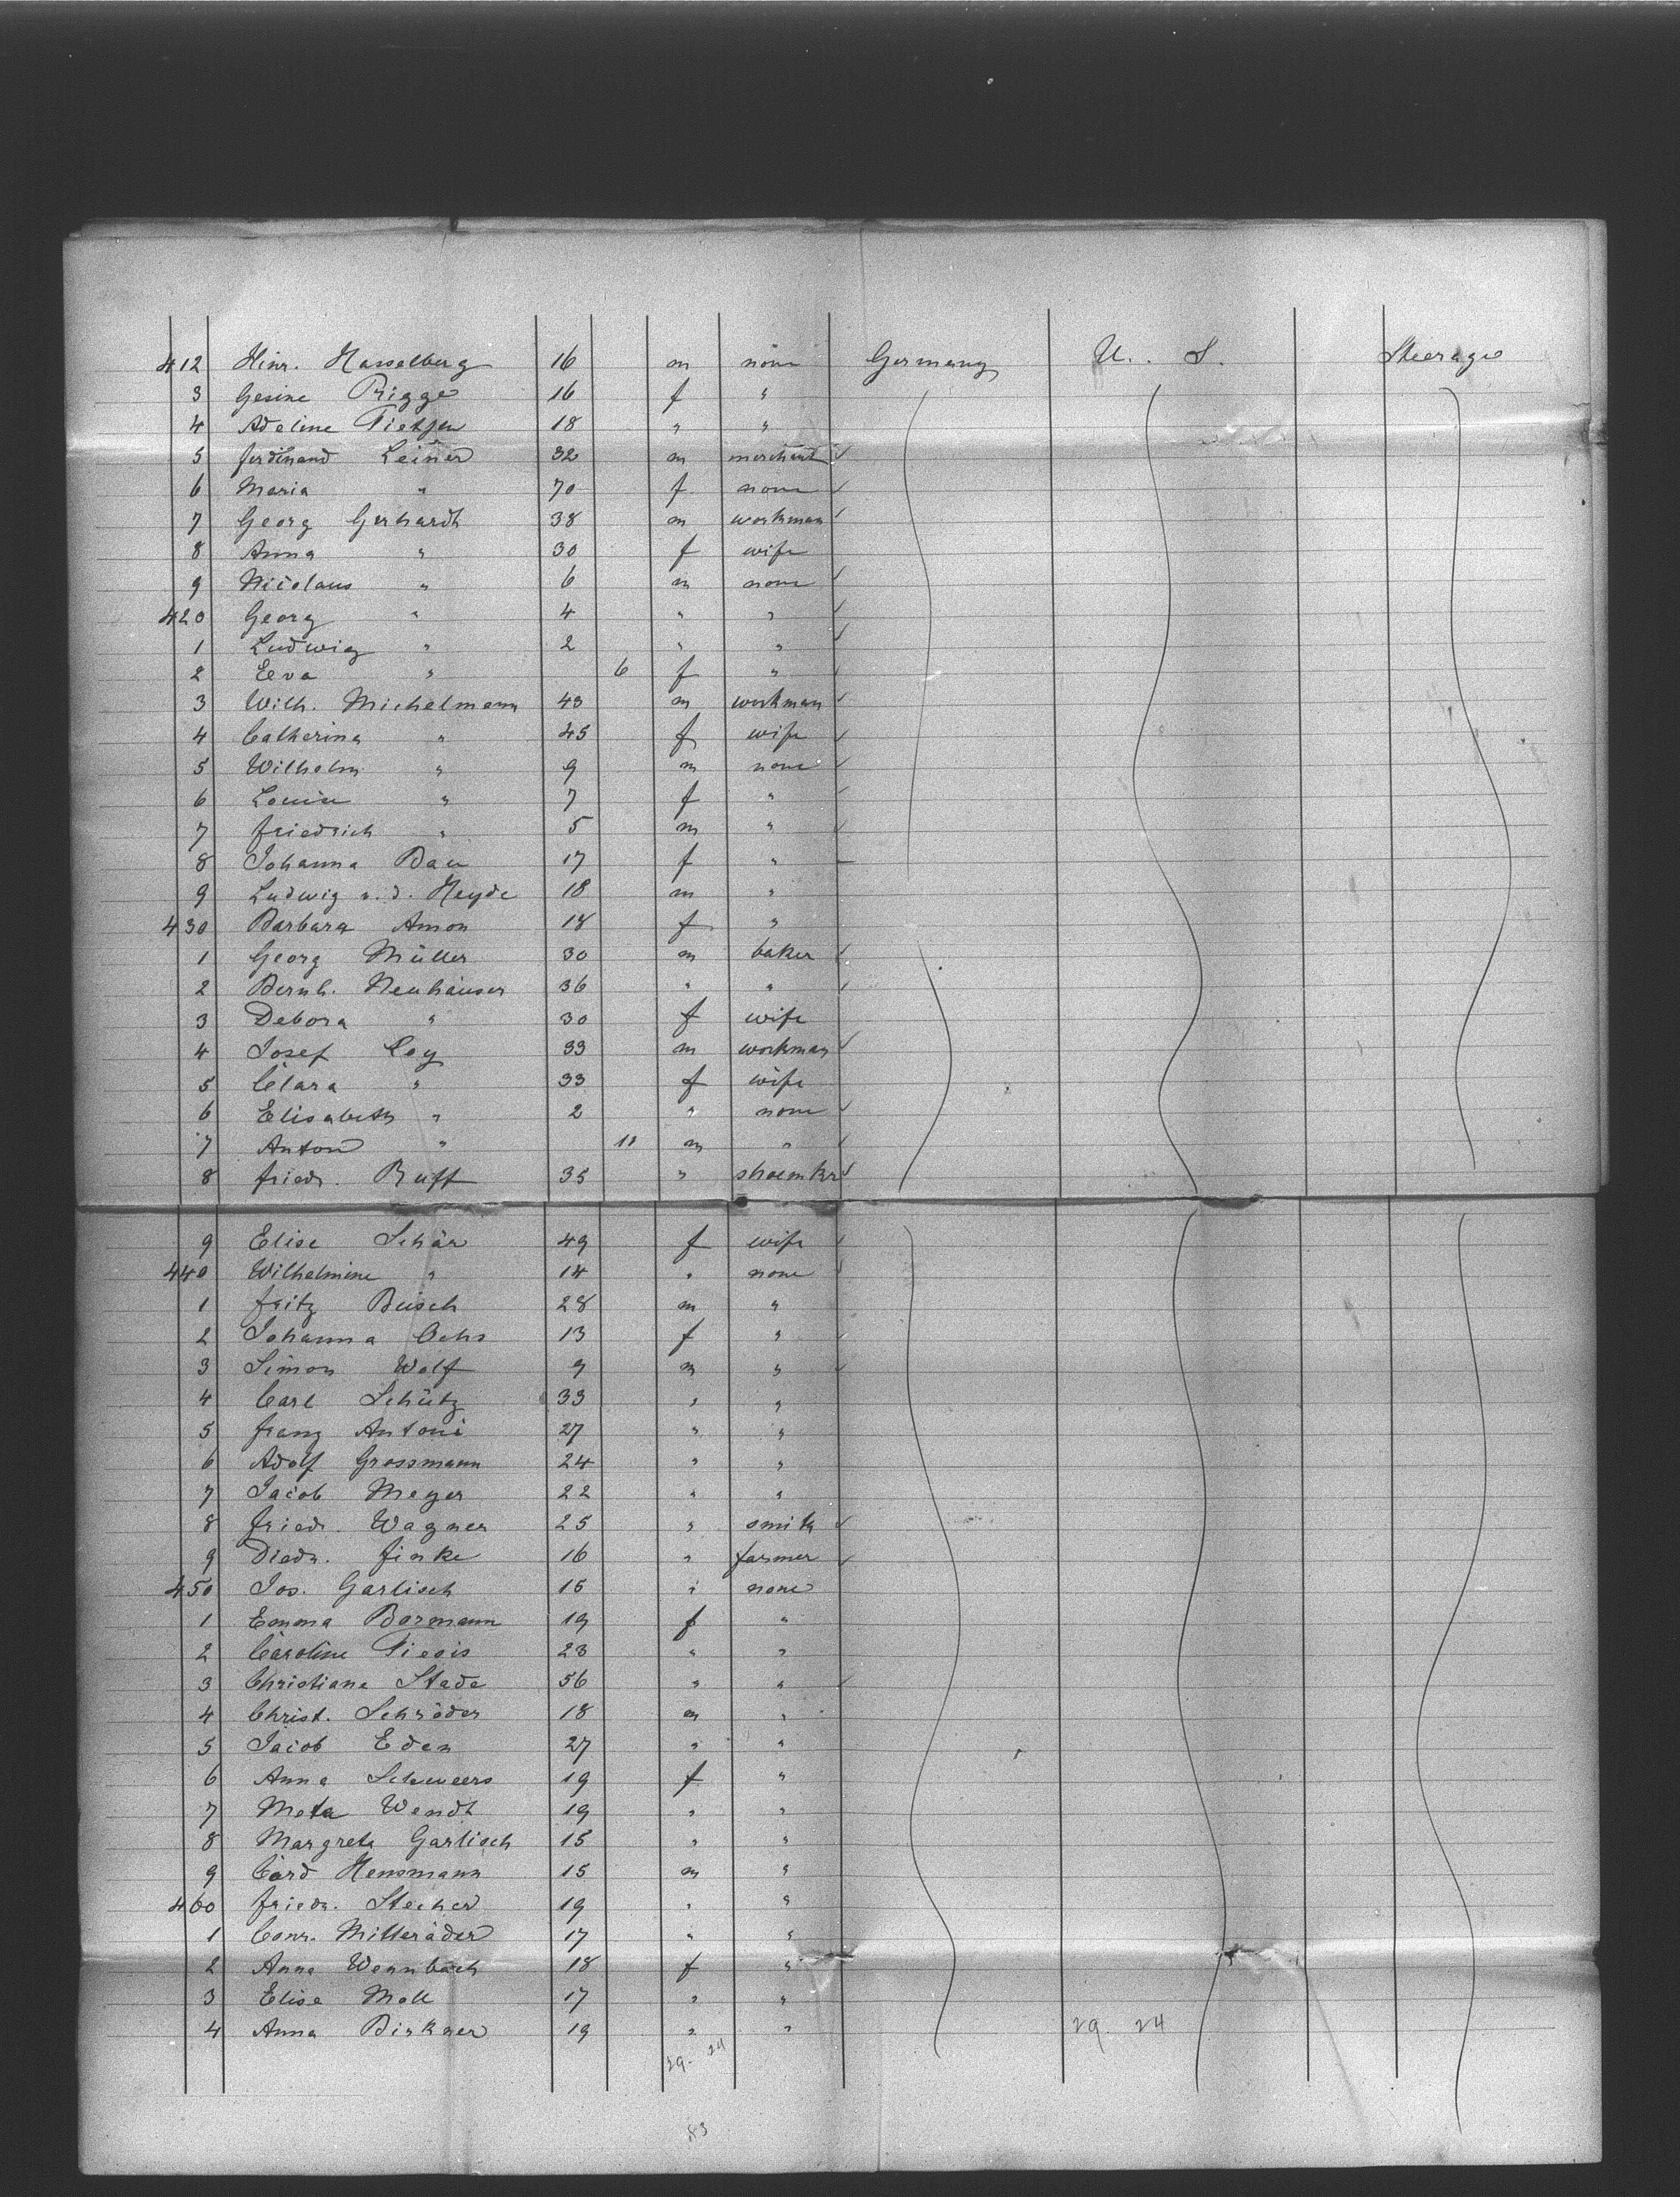 412 Hinr. Hasselberg 16 m none Germany U. S. Steerage
3 Gesine Rigge 16 f "
4 Adeline Tietjen 18 " "
5 Ferdinand Leiner 32 m merchant
6 Maria " 70 f none
7 Georg Gerhardt 38 m workman
8 Anna " 30 f wife
9 Nicolaus " 6 m none
420 Georg " 4 " "
1 Ludwig " 2 " "
2 Eva " 6 f "
3 Wilh. Michelmann 43 m workman
4 Catharina " 45 f wife
5 Wilhelm " 9 m none
6 Louise " 7 f "
7 Friedrich " 5 m "
8 Johanna Bau 17 f "
9 Ludwig v. d. Heyde 18 m "
430 Barbara Amon 18 f "
1 Georg Müller 30 m baker
2 Bernh. Neuhäuser 36 " "
3 Debora " 30 f wife
4 Josef 33 m workman
5 Clara " 33 f wife
6 Elisabeth " 2 " none
7 Anton " 11 m "
8 Friedr. Ruff 35 " shoemkr
9 Elise Schär 49 f wife
440 Wilhelmine " 14 " none
1 Fritz Busch 28 m "
2 Johanna Ochs 13 f "
3 Simon Wolf 9 m "
4 Carl Schütz 33 " "
5 Franz Antoni 27 " "
6 Adolf Grossmann 24 " "
7 Jacob Meyer 22 " "
8 Friedr. Wagner 25 " smith
9 Diedr. Finke 16 " farmer
450 Jos. Garlisch 15 " none
1 Emma Bormann 19 f "
2 Caroline 23 " "
3 Christiane Stade 56 " "
4 Christ. Schröder 18 m "
5 Jacob Eden 27 " "
6 Anna Schweers 19 f "
7 Meta Wendt 19 " "
8 Margreta Garlisch 15 " "
9 Cord Hensmann 15 m "
460 Friedr. Stecher 19 " "
1 Conr. Milleräder 17 " "
2 Anna Wennbach 18 f "
3 Elise Moll 17 " "
4 Anna Birkner 19 " " 29. 24
29. 24
83